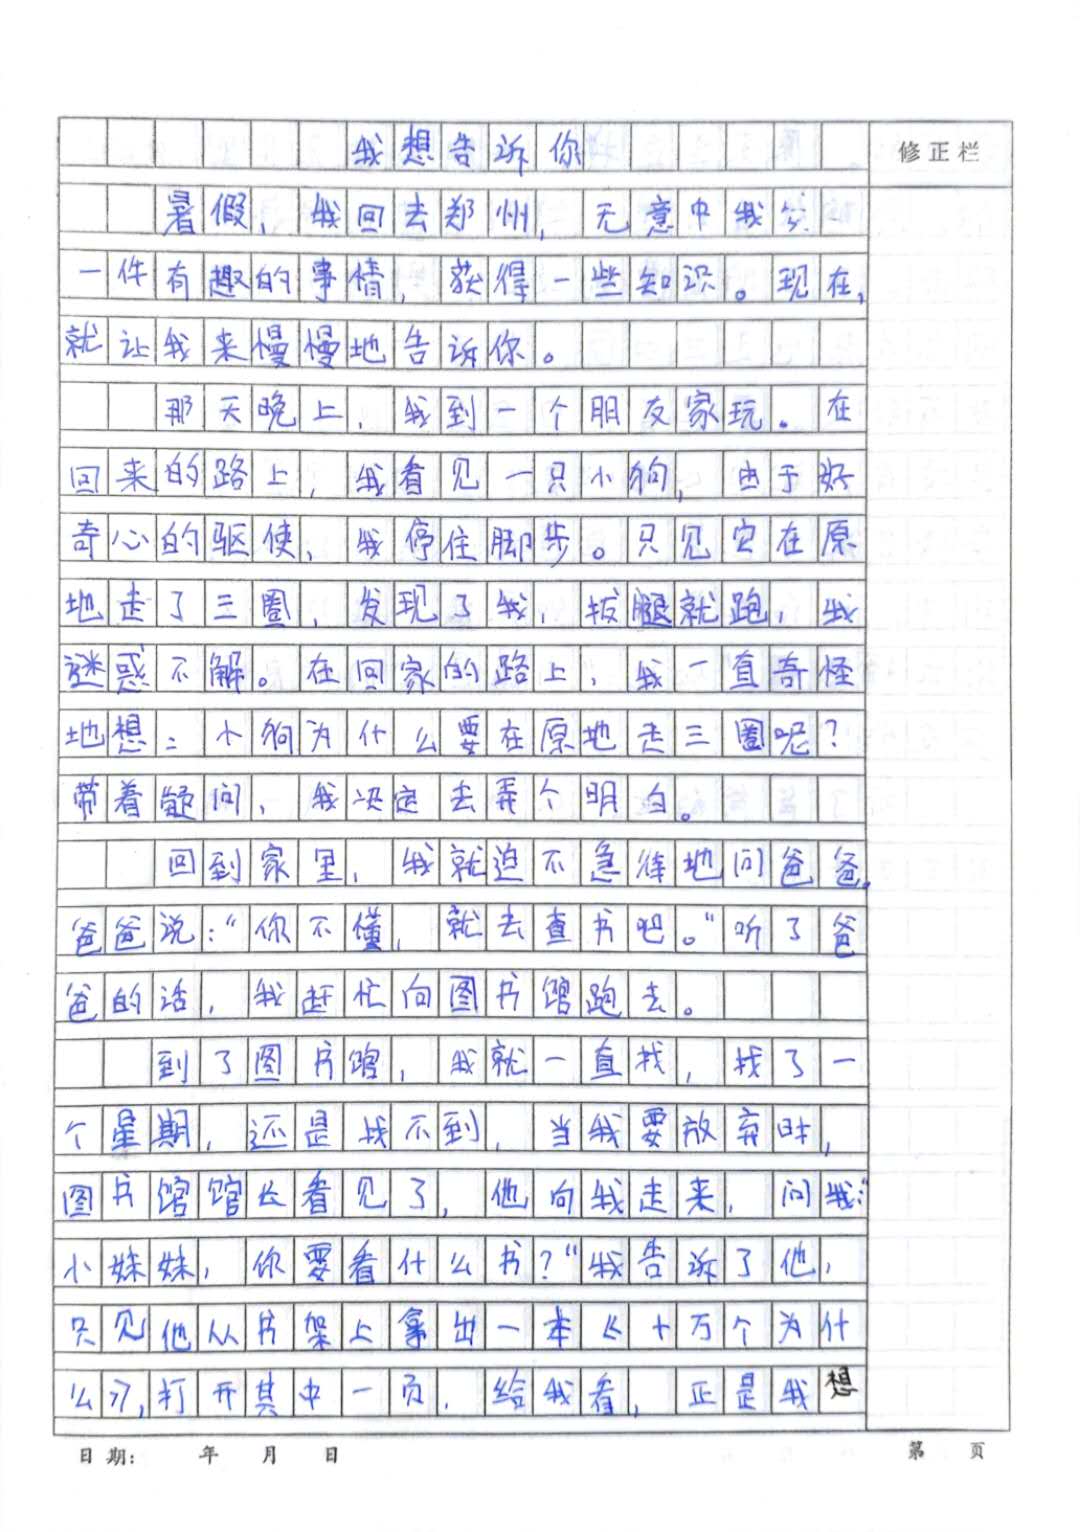 我想告诉你
修正栏
暑假，我回去郑州，无意中我
一件有趣的事情，获得一些知识。现在，
就让我来慢慢地告诉你。
那天晚上，我到一个朋友家玩。在
回来的路上，我看见一只小狗，由于好
奇心的驱使，我停住脚步。只见它在原
地走了三圈，发现了我，拔腿就跑，我
谜惑不解。在回家的路上，我一直奇怪
地想：小狗为什么要在原地走三圈呢？
带着疑问，我决定去弄个明白。
回到家里，我就迫不急待地问爸爸。
爸爸说：“你不懂，就去查书吧。”听了爸
爸的话，我赶忙向图书馆跑去。
到了图书馆，我就一直找，找了一
个星期，还是找不到，当我要放弃时，
图书馆馆长看见了，他向我走来，问我：“
小妹妹，你要看什么书？”我告诉了他，
只见他从书架上拿出一本《十万个为什
么》，打开其中一页，给我看，正是我想
日期： 年 月 日
第 页